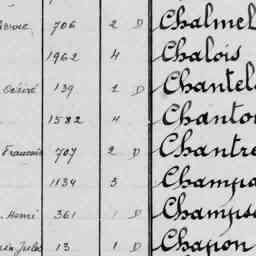 706 2 D Chalmel
1962 4 Chalois
Désiré 139 1 D Chantel
1582 4 Chanton
François 707 2 D Chantre
1134 3 Champa
Henri 361 1 D Champs
Jules 13 1 D Chapon